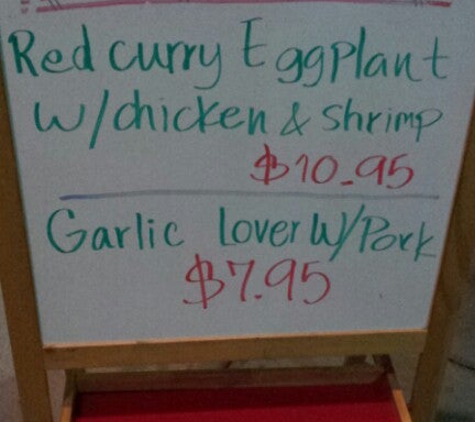 Red curry Eggplant
w/chicken & shrimp
$10.95
Garlic Lover W/Pork
$7.95